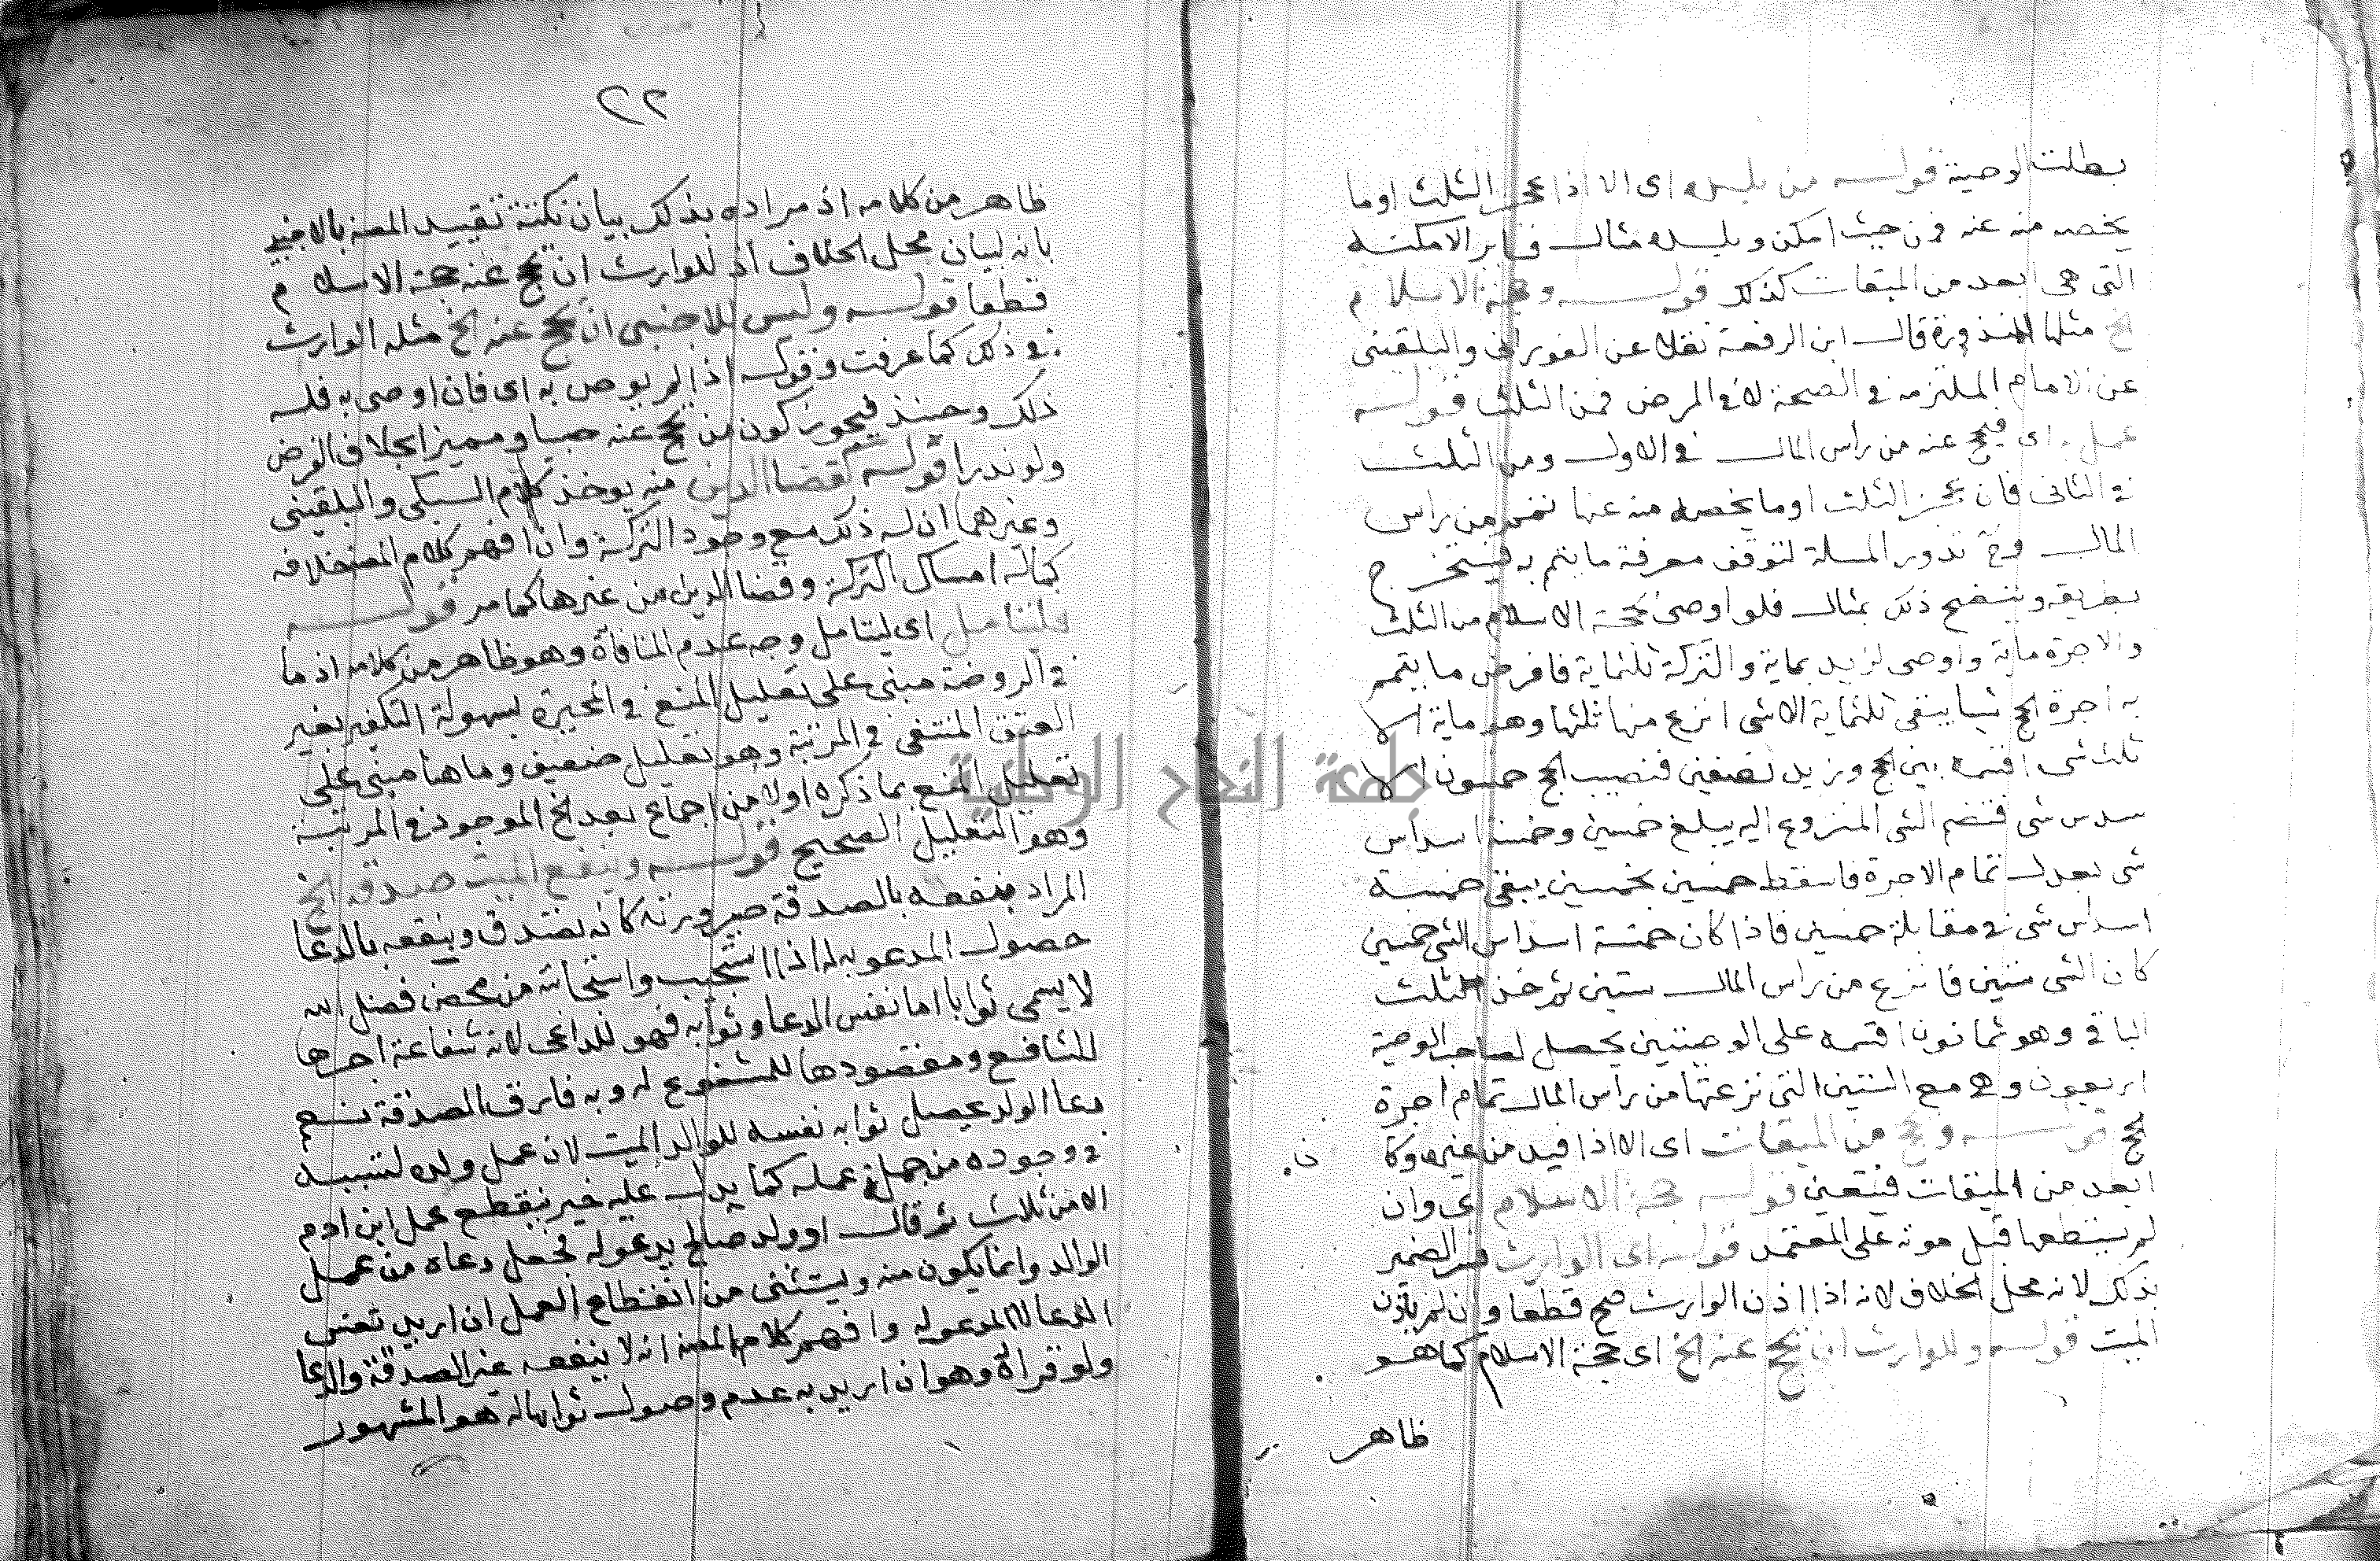 بطلت الوصية قولـه من بلده اى الا اذا عجز الثلث اوما
يخصه منه عنه فمن حيث امكن وبلده مثال فساير الامكنة
التى هى ابعد من الميقات كذلك قولـه وحجة الاسلام
الخ مثلها المنذورة قال ابن الرفعة نقلا عن الفورانى والبلقينى
عن الامام الملتزمه فى الصحة لا فى المرض فمن الثلث قولـه
عمل به اى فيحج عنه من راس المال فى الاول ومن الثلث
فى الثانى فان عجز الثلث اوما يخصه منه عنها تمم من راس
المال وح تدور المسلة لتوقف معرفة ما يتم به فيستخرج
بطريقه ويتضح ذلك بمثال فلو اوصى بحجة الاسلام من الثلث
والاجرة ماية واوصى لزيد بماية والتركة ثلثماية فافرض ما يتمم
به اجرة الحج شيا يبقى ثلثماية الا شى انزع منها ثلثها وهو ماية الا
ثلث شى اقسمه بين الحج وزيد نصفين فنصيب الحج خمسون الا
سدس شى فتضم الشى المنزوع اليه يبلغ خمسين وخمسة اسداس
شى تعدل تمام الاجرة فاسقط خمسين بخمسين يبقى خمسة
اسداس شى فى مقابلة خمسين فاذا كان خمسة اسداس الشى خمسين
كان الشى ستين فانزع من راس المال ستين ثم خذ ثلث
الباقى وهو ثمانون اقسمه على الوصيتين يحصل لصاحب الوصية
اربعون وهى مع الستين التى نزعتها من راس المال تمام اجرة
الحج قولـه ويحج من الميقات اى الا اذا قيد من غيره وكا
ن
ابعد من الميقات فيتعين قولـه حجة الاسلام اى وان
لم يستطعها قبل موته على المعتمد قولـه اى الوارث فسر الضمير
بذلك لانه محل الخلاف لانه اذا اذن الوارث صح قطعا وان لم ياذن
الميت قولـه وللوارث ان يحج عنه الخ اى حجة الاسلام كما هو
ظاهر
٢٢
ظاهر من كلامه اذ مراده بذلك بيان نكتة تقييد المصنف بالاجنبى
بانه لبيان محل الخلاف اذ للوارث ان يحج عنه حجة الاسلام
قطعا قولـه وليس للاجنبى ان يحج عنه الخ مثله الوارث
فى ذلك كما عرفت وقولـه اذا لم يوص به اى فان اوصى به فله
ذلك وحينئذ فيجوز كون من يحج عنه صبيا ومميزا بخلاف الفرض
ولو نذرا قولـه كقضا الدين منه يوخذ كلام السبكى والبلقينى
وغيرهما ان له ذلك مع وجود التركة وان افهم كلام المصنف خلافه
كما له امساك التركة وقضا الدين من غيرها كما مر قولـه
فليتامل اى ليتامل وجه عدم المنافاة وهو ظاهر من كلامه اذ ما
فى الروضة مبنى على تعليل المنع فى المخيرة بسهولة التكفير بغير
العتق المنتفى فى المرتبة وهو تعليل ضعيف وما هنا مبنى على
تعليل المنع بما ذكره اولا من اجماع بعد الخ الموجود فى المرتبة
وهو التعليل الصحيح قولـه وينفع الميت صدقة الخ
المراد بنفعه بالصدقة صيرورته كانه تصدق وينفعه بالدعا
حصول المدعو به له اذا استجيب واستجابته من محض فضل الله
لا يسمى ثوابا اما نفس الدعا وثوابه فهو للداعى لانه شفاعة اجرها
للشافع ومقصودها للمشفوع له وبه فارق الصدقة نعم
دعا الولد يحصل ثوابه نفسه للوالد الميت لان عمل ولده لتسببه
فى وجوده من جملة عمله كما يدل عليه خبر ينقطع عمل ابن ادم
الا من ثلاث ثم قال او ولد صالح يدعو له فجعل دعاه من عمل
الوالد وانما يكون منه ويستثنى من انقطاع العمل ان اريد نفس
الدعا لا المدعو له وافهم كلام المصنف انه لا ينفعه غير الصدقة والدعا
ولو قراة وهو ان اريد به عدم وصول ثوابها له هو المشهور
جامعة النجاح الوطنية